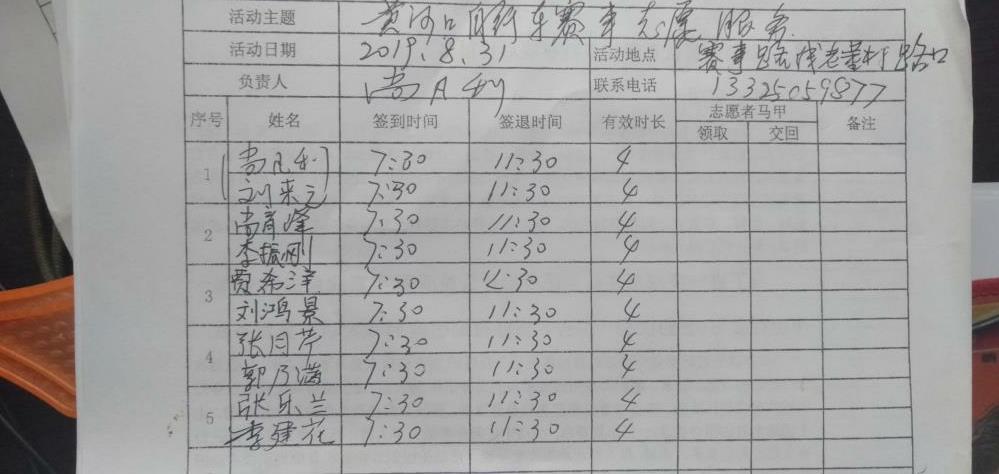 活动主题 黄河口自行车赛事志愿服务
活动日期 2019.8.31 活动地点 赛事路线老董村路口
负责人 尚凡利 联系电话 13325059877
序号 姓名 签到时间 签退时间 有效时长 志愿者马甲 备注
领取 交回
1 尚凡利 7:30 11:30 4
刘来元 7:30 11:30 4
2 尚育峰 7:30 11:30 4
李振刚 7:30 11:30 4
3 贾希洋 7:30 11:30 4
刘鸿景 7:30 11:30 4
4 张月芹 7:30 11:30 4
郭乃满 7:30 11:30 4
5 张乐兰 7:30 11:30 4
李建花 7:30 11:30 4